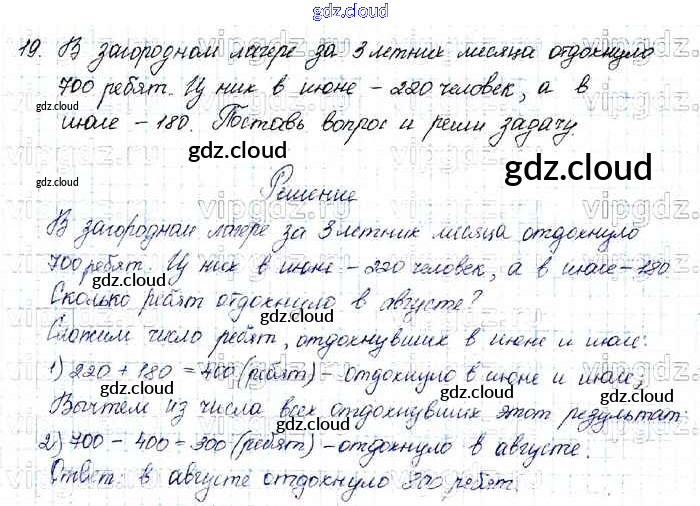 gdz.cloud
19. В загородном лагере за 3 летних месяца отдохнуло
700 ребят. Из них в июне - 220 человек, а в
июле - 180. Поставь вопрос и реши задачу.
Решение
В загородном лагере за 3 летних месяца отдохнуло
700 ребят. Из них в июне - 220 человек, а в июле - 180
Сколько ребят отдохнуло в августе?
Сложим число ребят, отдохнувших в июне и июле:
1) 220 + 180 = 400 (ребят) - отдохнуло в июне и июле,
Вычтем из числа всех отдохнувших этот результат
2) 700 - 400 = 300 (ребят) - отдохнуло в августе.
Ответ: в августе отдохнуло 300 ребят.